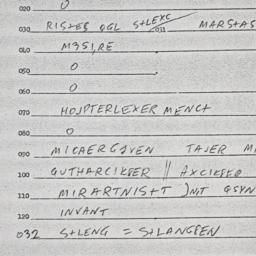 020 0
030 RISTER OGL STLEXC 031 MARSTAS
040 M3SI,RE
050 0
060 0
070 HOJPTERLEXER MENCT
080 0
090 MICAERGSVEN TAJER M
100 GUTHARCIKSER || AXCIKSER
110 MIRARTNISTT JNT GSYN
120 INVANT
032 STLENG = STLANGSEN